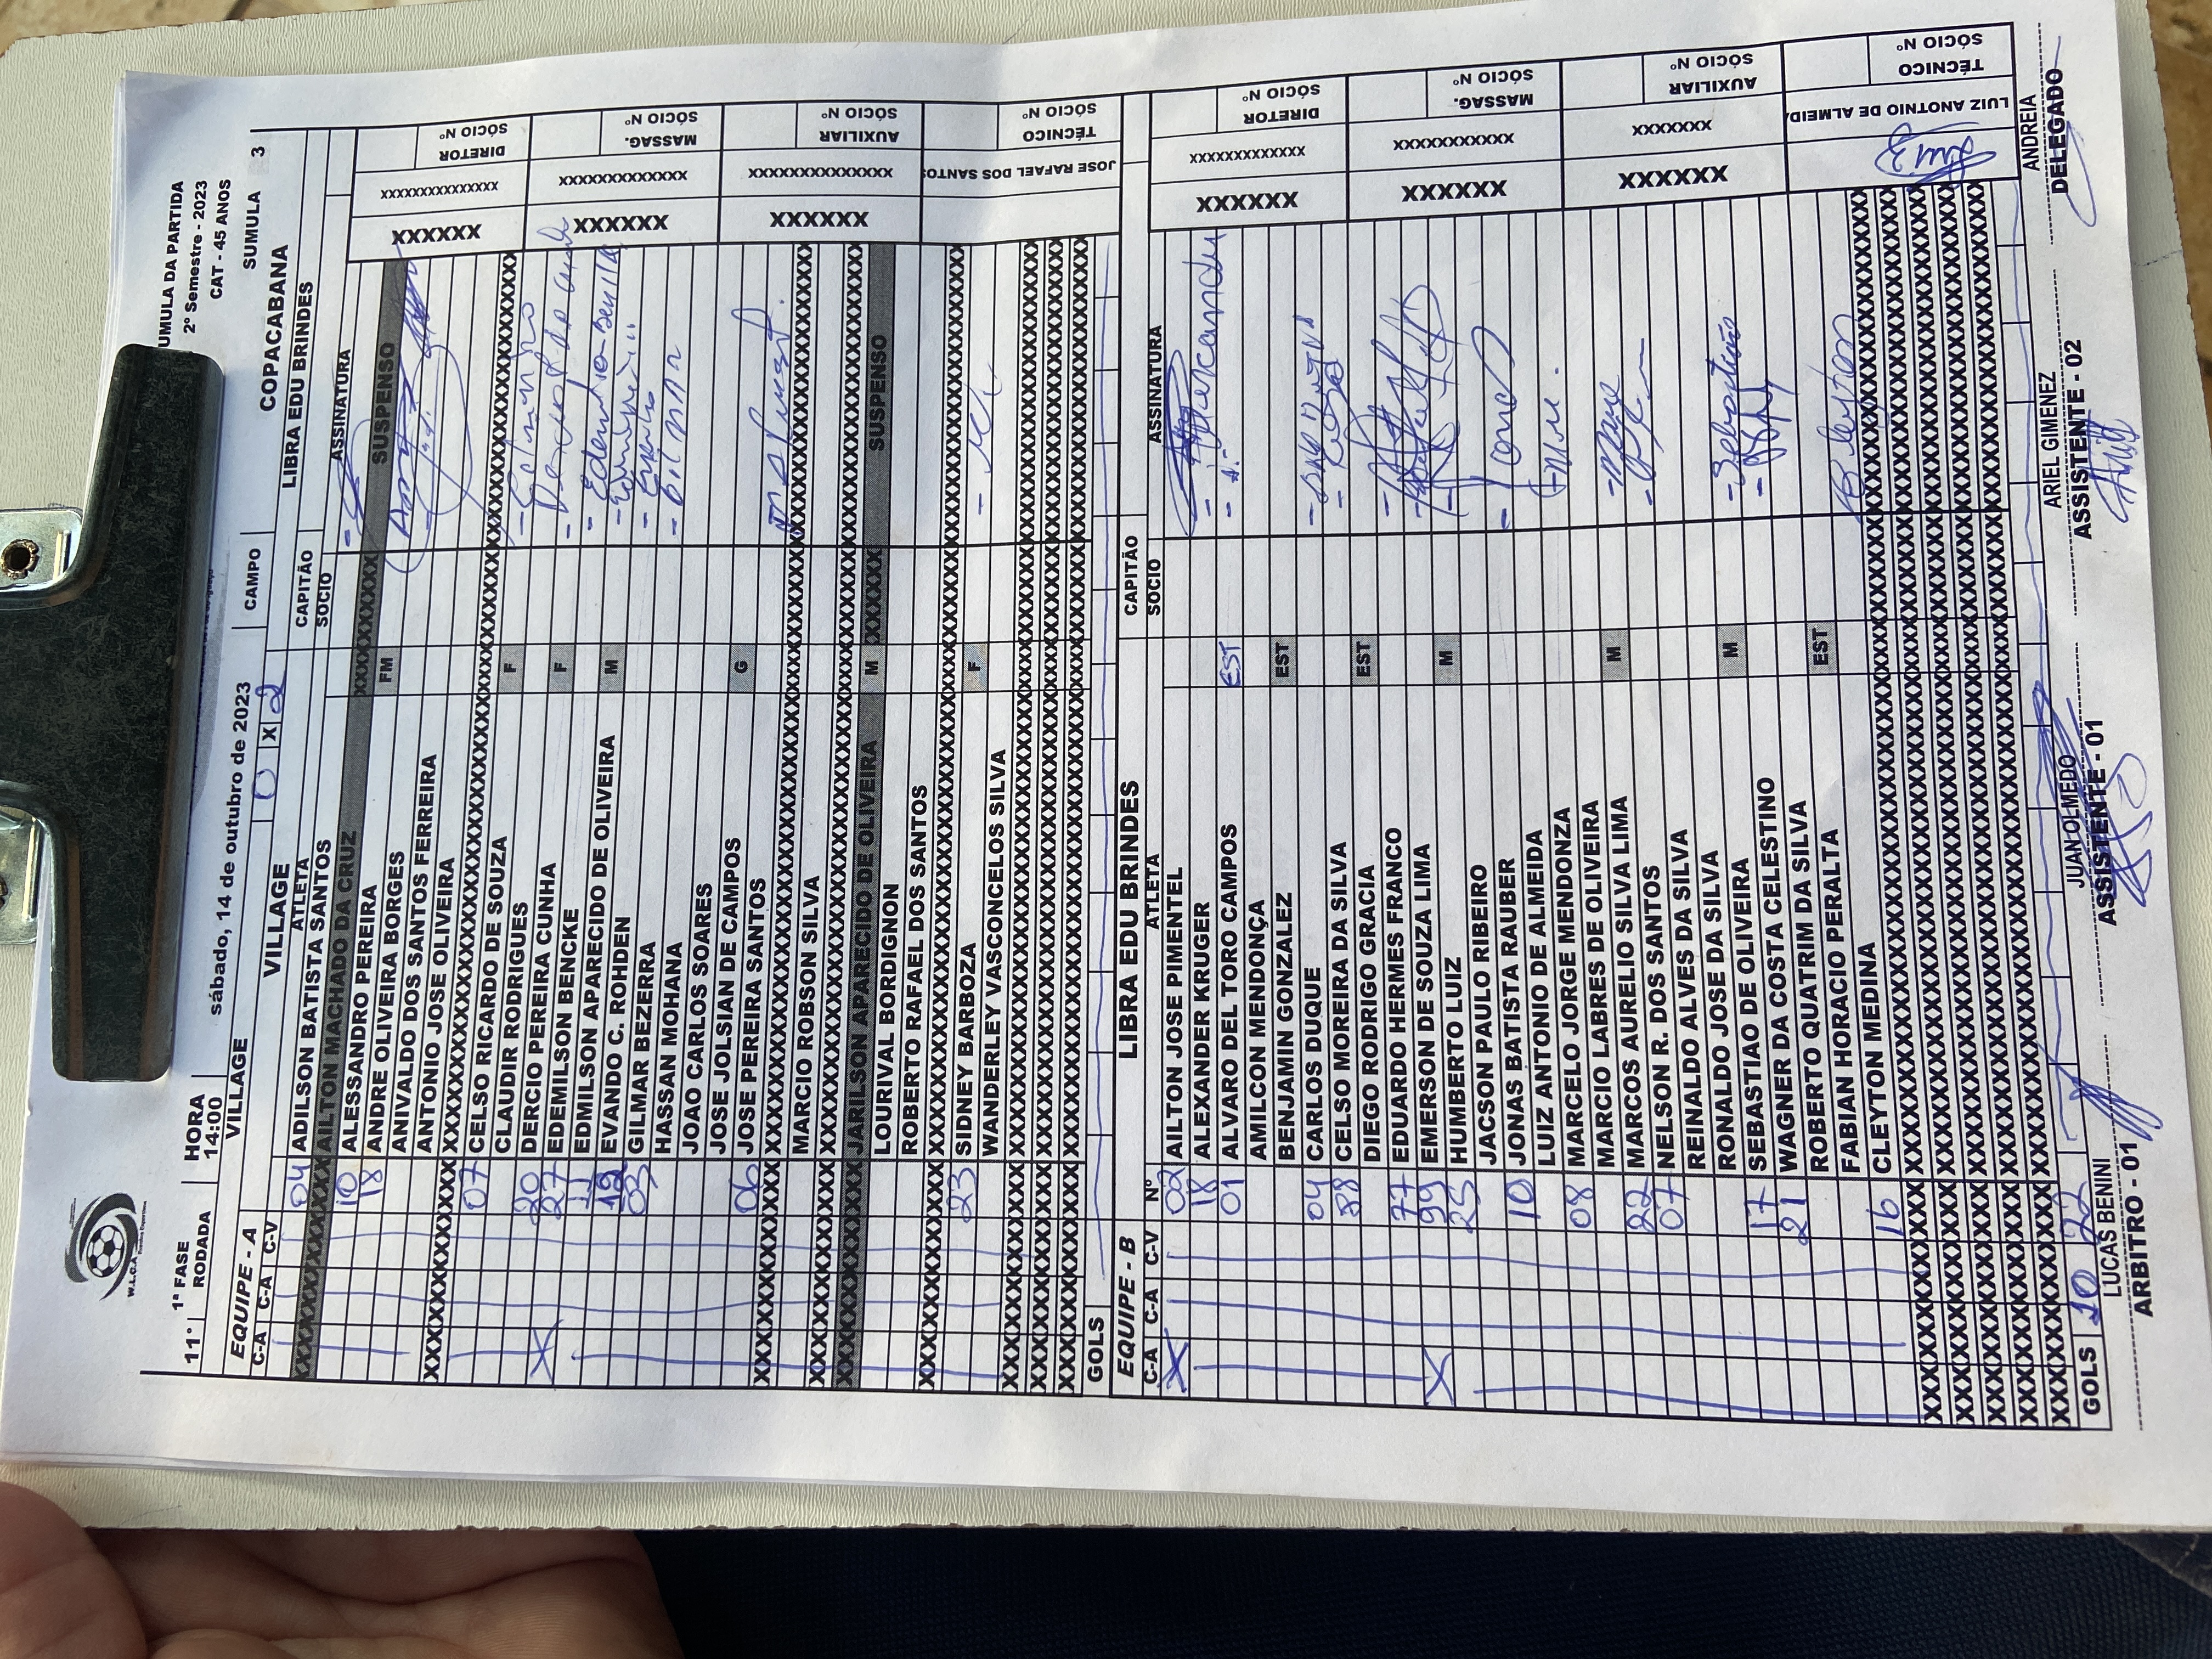 W.L.C.A.
SUMULA DA PARTIDA
2º Semestre - 2023
CAT - 45 ANOS
1ª FASE HORA
11° RODADA 14:00 sábado, 14 de outubro de 2023 SUMULA 3
VILLAGE CAMPO COPACABANA
EQUIPE - A VILLAGE 0 X 2 LIBRA EDU BRINDES
C-A C-A C-V ATLETA CAPITÃO
SOCIO ASSINATURA
04 ADILSON BATISTA SANTOS
AILTON MACHADO DA CRUZ SUSPENSO
10 ALESSANDRO PEREIRA FM
18 ANDRE OLIVEIRA BORGES
ANIVALDO DOS SANTOS FERREIRA
ANTONIO JOSE OLIVEIRA
07 CELSO RICARDO DE SOUZA
CLAUDIR RODRIGUES F
X 20 DERCIO PEREIRA CUNHA
27 EDEMILSON BENCKE F
11 EDMILSON APARECIDO DE OLIVEIRA
12 EVANDO C. ROHDEN M
03 GILMAR BEZERRA
HASSAN MOHANA
JOAO CARLOS SOARES
JOSE JOLSIAN DE CAMPOS
06 JOSE PEREIRA SANTOS G
MARCIO ROBSON SILVA
JARILSON APARECIDO DE OLIVEIRA M SUSPENSO
LOURIVAL BORDIGNON
ROBERTO RAFAEL DOS SANTOS
23 SIDNEY BARBOZA
WANDERLEY VASCONCELOS SILVA F
GOLS
XXXXXX XXXXXXXXXXXXXXX DIRETOR SÓCIO Nº
XXXXXX XXXXXXXXXXXXX MASSAG. SÓCIO Nº
XXXXXX XXXXXXXXXXXXXXX AUXILIAR SÓCIO Nº
JOSE RAFAEL DOS SANTOS TÉCNICO SÓCIO Nº
EQUIPE - B LIBRA EDU BRINDES CAPITÃO
C-A C-A C-V Nº ATLETA SOCIO ASSINATURA
X 02 AILTON JOSE PIMENTEL
18 ALEXANDER KRUGER
01 ALVARO DEL TORO CAMPOS EST
AMILCON MENDONÇA
BENJAMIN GONZALEZ EST
04 CARLOS DUQUE
88 CELSO MOREIRA DA SILVA
DIEGO RODRIGO GRACIA EST
77 EDUARDO HERMES FRANCO
X 99 EMERSON DE SOUZA LIMA
25 HUMBERTO LUIZ M
JACSON PAULO RIBEIRO
10 JONAS BATISTA RAUBER
LUIZ ANTONIO DE ALMEIDA
08 MARCELO JORGE MENDONZA
MARCIO LABRES DE OLIVEIRA
22 MARCOS AURELIO SILVA LIMA M
07 NELSON R. DOS SANTOS
REINALDO ALVES DA SILVA
RONALDO JOSE DA SILVA
17 SEBASTIAO DE OLIVEIRA M
21 WAGNER DA COSTA CELESTINO
ROBERTO QUATRIM DA SILVA
FABIAN HORACIO PERALTA EST
16 CLEYTON MEDINA
GOLS 10 22
XXXXXX XXXXXXXXXXXXX DIRETOR SÓCIO Nº
XXXXXX XXXXXXXXXXXXX MASSAG. SÓCIO Nº
XXXXXX XXXXXXX AUXILIAR SÓCIO Nº
LUIZ ANOTNIO DE ALMEID TÉCNICO SÓCIO Nº
LUCAS BENINI JUAN OLMEDO ARIEL GIMENEZ ANDREIA
ARBITRO - 01 ASSISTENTE - 01 ASSISTENTE - 02 DELEGADO